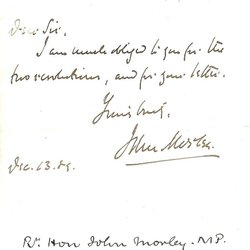 Dear Sir.
I am much obliged to you for the
two resolutions, and for your letter.
Yours truly,
John Morley.
Dec. 13. 89.
Rt. Hon John Morley. M.P.